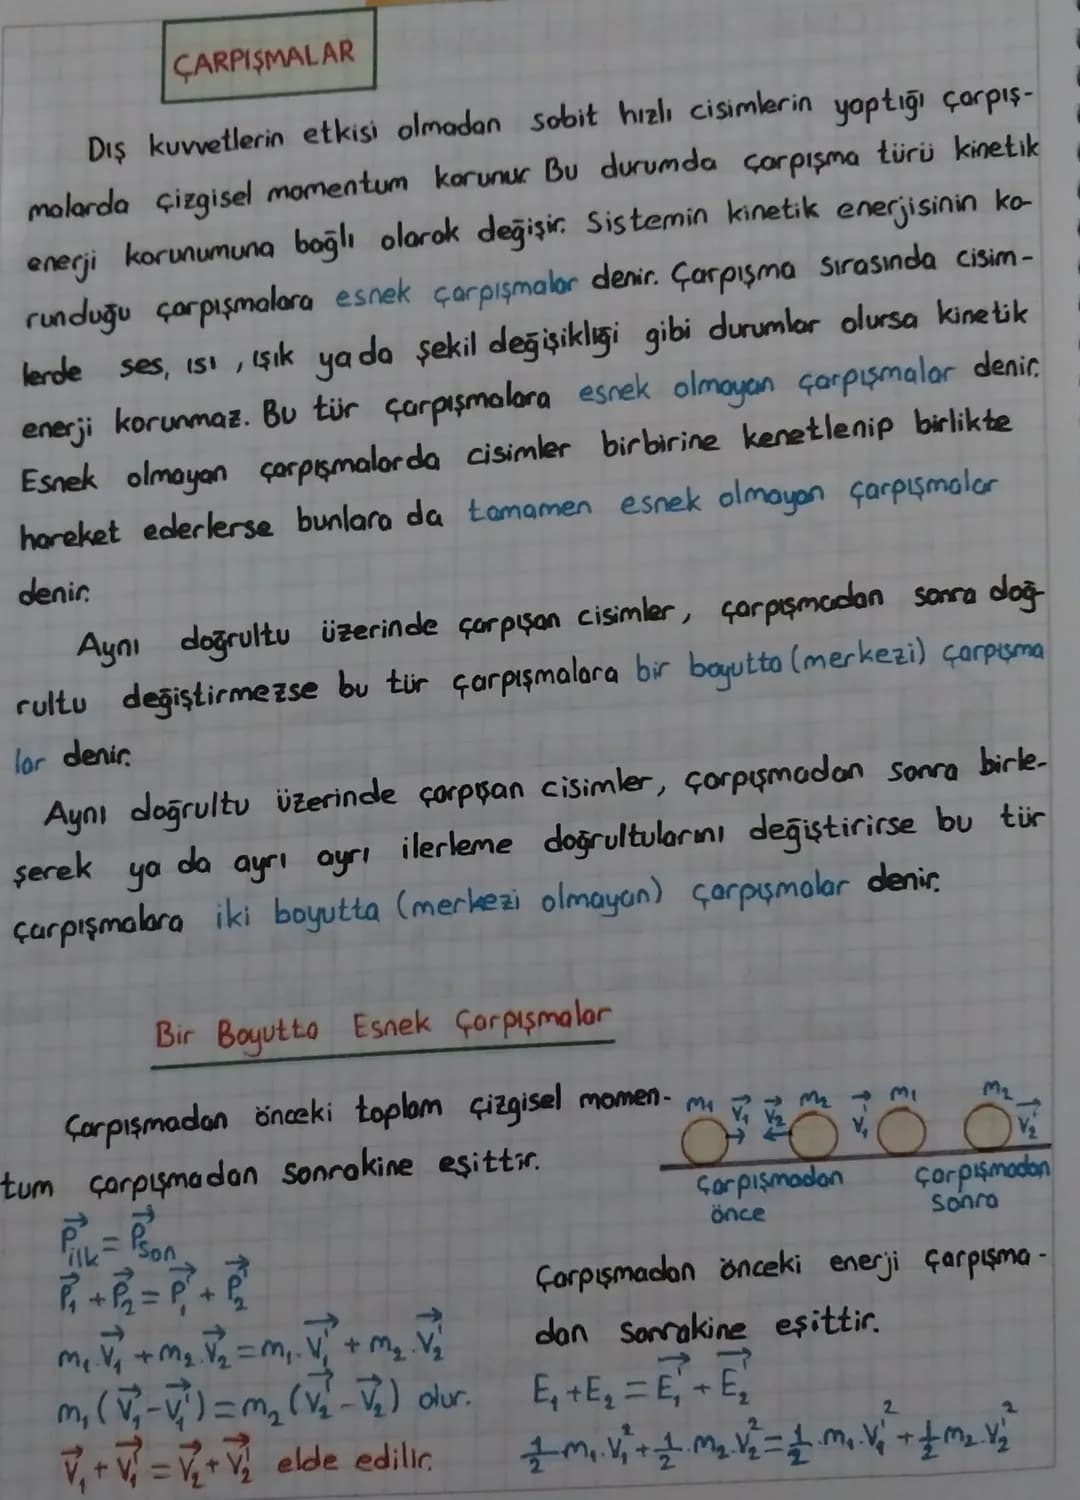 ÇARPIŞMALAR
Dış kuvvetlerin etkisi olmadan sabit hızlı cisimlerin yaptığı çarpış-
malarda çizgisel momentum korunur. Bu durumda çarpışma türü kinetik
enerji korunumuna bağlı olarak değişir. Sistemin kinetik enerjisinin ko-
runduğu çarpışmalara esnek çarpışmalar denir. Çarpışma sırasında cisim-
lerde ses, ısı, ışık ya da şekil değişikliği gibi durumlar olursa kinetik
enerji korunmaz. Bu tür çarpışmalara esnek olmayan çarpışmalar denir.
Esnek olmayan çarpışmalarda cisimler birbirine kenetlenip birlikte
hareket ederlerse bunlara da tamamen esnek olmayan çarpışmalar
denir.
Aynı doğrultu üzerinde çarpışan cisimler, çarpışmadan sonra doğ-
rultu değiştirmezse bu tür çarpışmalara bir boyutta (merkezi) çarpışma
lar denir.
Aynı doğrultu üzerinde çarpışan cisimler, çarpışmadan sonra birle-
şerek ya da ayrı ayrı ilerleme doğrultularını değiştirirse bu tür
çarpışmalara iki boyutta (merkezi olmayan) çarpışmalar denir.
Bir Boyutta Esnek Çarpışmalar
Çarpışmadan önceki toplam çizgisel momen-
tum çarpışmadan sonrakine eşittir.
P⃗ilk = P⃗son
P⃗₁ + P⃗₂ = P⃗₁' + P⃗₂'
m₁.V⃗₁ + m₂.V⃗₂ = m₁.V⃗₁' + m₂.V⃗₂'
m₁(V⃗₁ - V⃗₁') = m₂(V⃗₂' - V⃗₂) olur.
V⃗₁ + V⃗₁' = V⃗₂ + V⃗₂' elde edilir.
m₁ V⃗₁ V⃗₂ m₂ V⃗₁' m₁ m₂ V⃗₂'
Çarpışmadan önce
Çarpışmadan sonra
Çarpışmadan önceki enerji çarpışma-
dan sonrakine eşittir.
E₁ + E₂ = E⃗₁' + E⃗₂'
½ m₁.V₁² + ½ m₂.V₂² = ½ m₁.V₁'² + ½ m₂.V₂'²